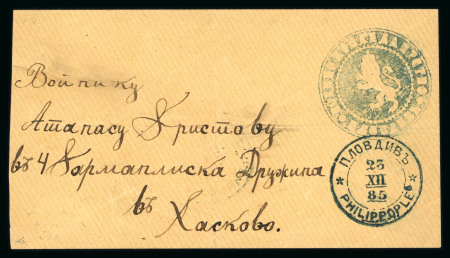 Войнику
Атанасу Христову
въ 4 Харманлиска Дружина
въ
Хасково.
ПЛОВДИВЪ
23
XII
85
PHILIPPOPLE